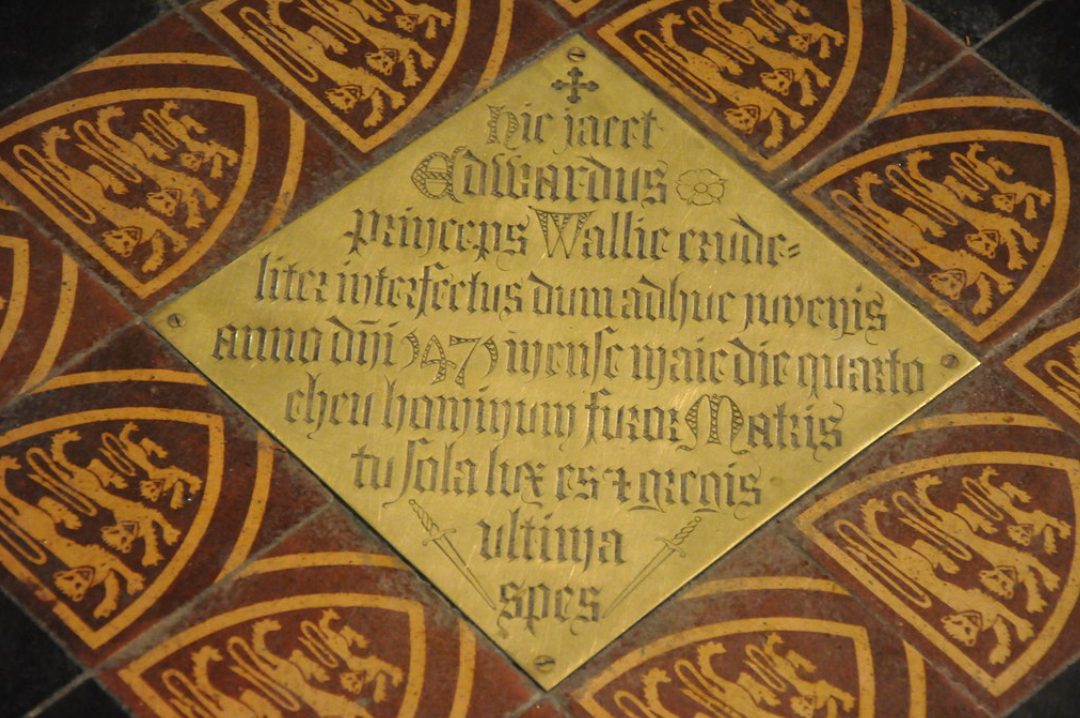 hic jacet
Edwardus
princeps Wallie crude=
liter interfectus dum adhuc juvenis
anno dñi 1471 mense maie die quarto
eheu hominum furor Matris
tu sola lux es + gregis
ultima
spes